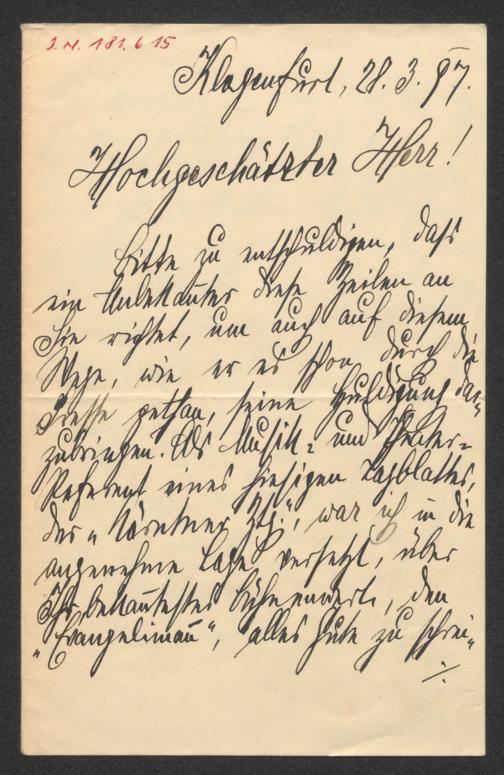 I.N. 181.615
Klagenfurt, 28.3.97.
Hochgeschätzter Herr!
Bitte zu entschuldigen, daß
ein Unbekannter diese Zeilen an
Sie richtet, um auch auf diesem
Wege, wie er es schon durch die
Presse gethan, seine Huldigung dar-
zubringen. Als Musik- und Theater-
Referent eines hiesigen Tagblattes,
der „Kärntner Ztg.", war ich in die
angenehme Lage versetzt, über
Ihr bekanntestes Bühnenwerk, den
„Evangelimann", alles Gute zu schrei-
./.